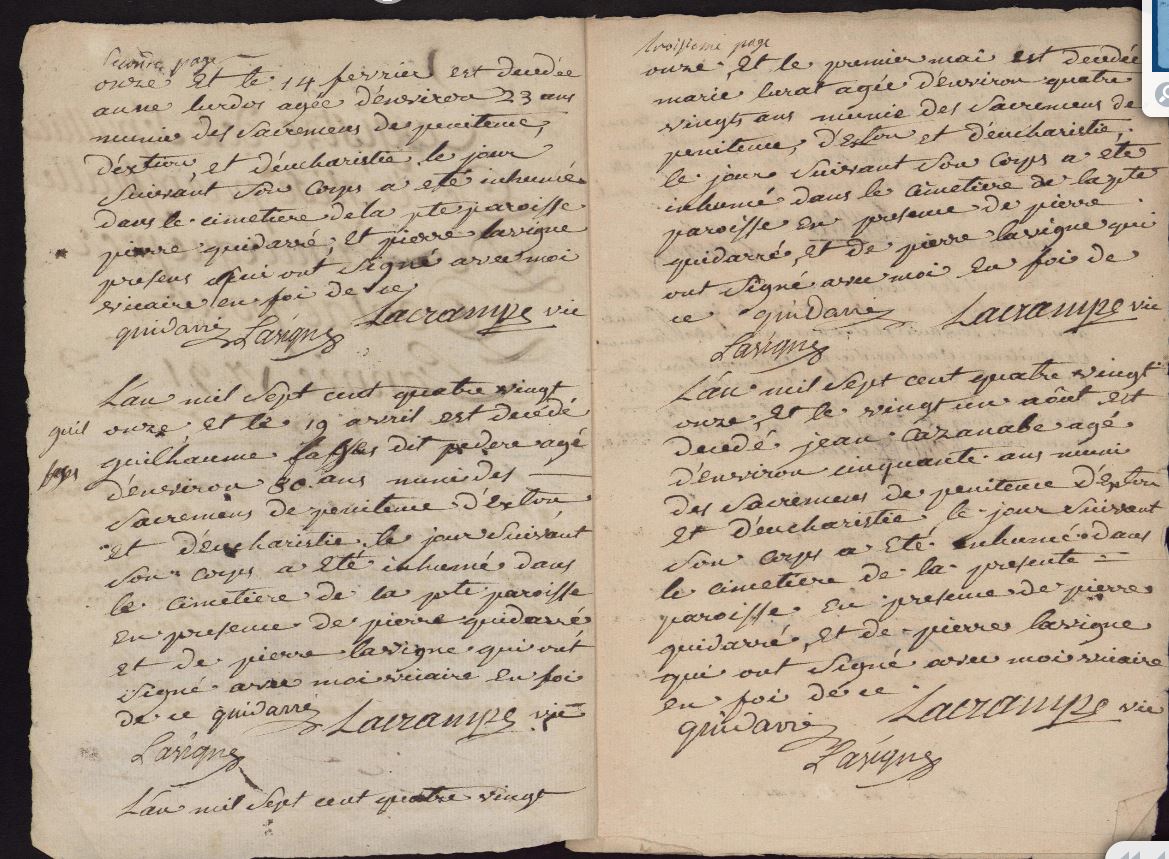 seconde page
onze Et le 14 fevrier est decedée
anne lurdos agée d'environ 23 ans
munie des Sacremens de penitence,
d'extion, et d'eucharistie le jour
Suivant Son corps a eté inhumée
dans le cimetiere de la pte paroisse
pierre guidarré, Et pierre lavigne
presens qui ont Signé avec moi
vicaire en foi de ce
guidarré Lavigne Lacrampe vic
L'an mil Sept cent quatre vingt
onze Et le 19 avril est decédé
guilhaume fages dit pedere agé
d'environ 80 ans muni des
Sacremens de penitence d'Extion
Et d'Eucharistie, le jour Suivant
Son corps a Eté inhumé dans
le cimetiere de la pte paroisse
En presence de pierre guidarré
et de pierre lavigne qui ont
Signé avec moi vicaire En foi
de ce guidarré Lacrampe vic
Lavigne
L'an mil Sept cent quatre vingt
guil
fages
troisieme page
onze, Et le premier mai est decedée
marie lurat agée d'environ quatre
vingts ans munie des Sacremens de
penitence, d'Extion et d'eucharistie,
le jour Suivant Son Corps a eté
inhumé dans le cimetiere de la pte
paroisse En presence de pierre
guidarré, Et de pierre lavigne qui
ont Signé avec moi En foi de
ce guidarré Lacrampe vic
Lavigne
L'an mil Sept cent quatre vingt
onze, Et le vingt un aôut est
decedé jean Cazanabe agé
d'environ cinquante ans muni
des Sacremens de penitence d'Extion
et d'eucharistie, le jour Suivant
Son corps a Eté inhumé dans
le cimetiere de la presente =
paroisse En presence de pierre
guidarré, Et de pierre lavigne
qui ont Signé avec moi vicaire
en foi de ce
guidarré Lacrampe vic
Lavigne